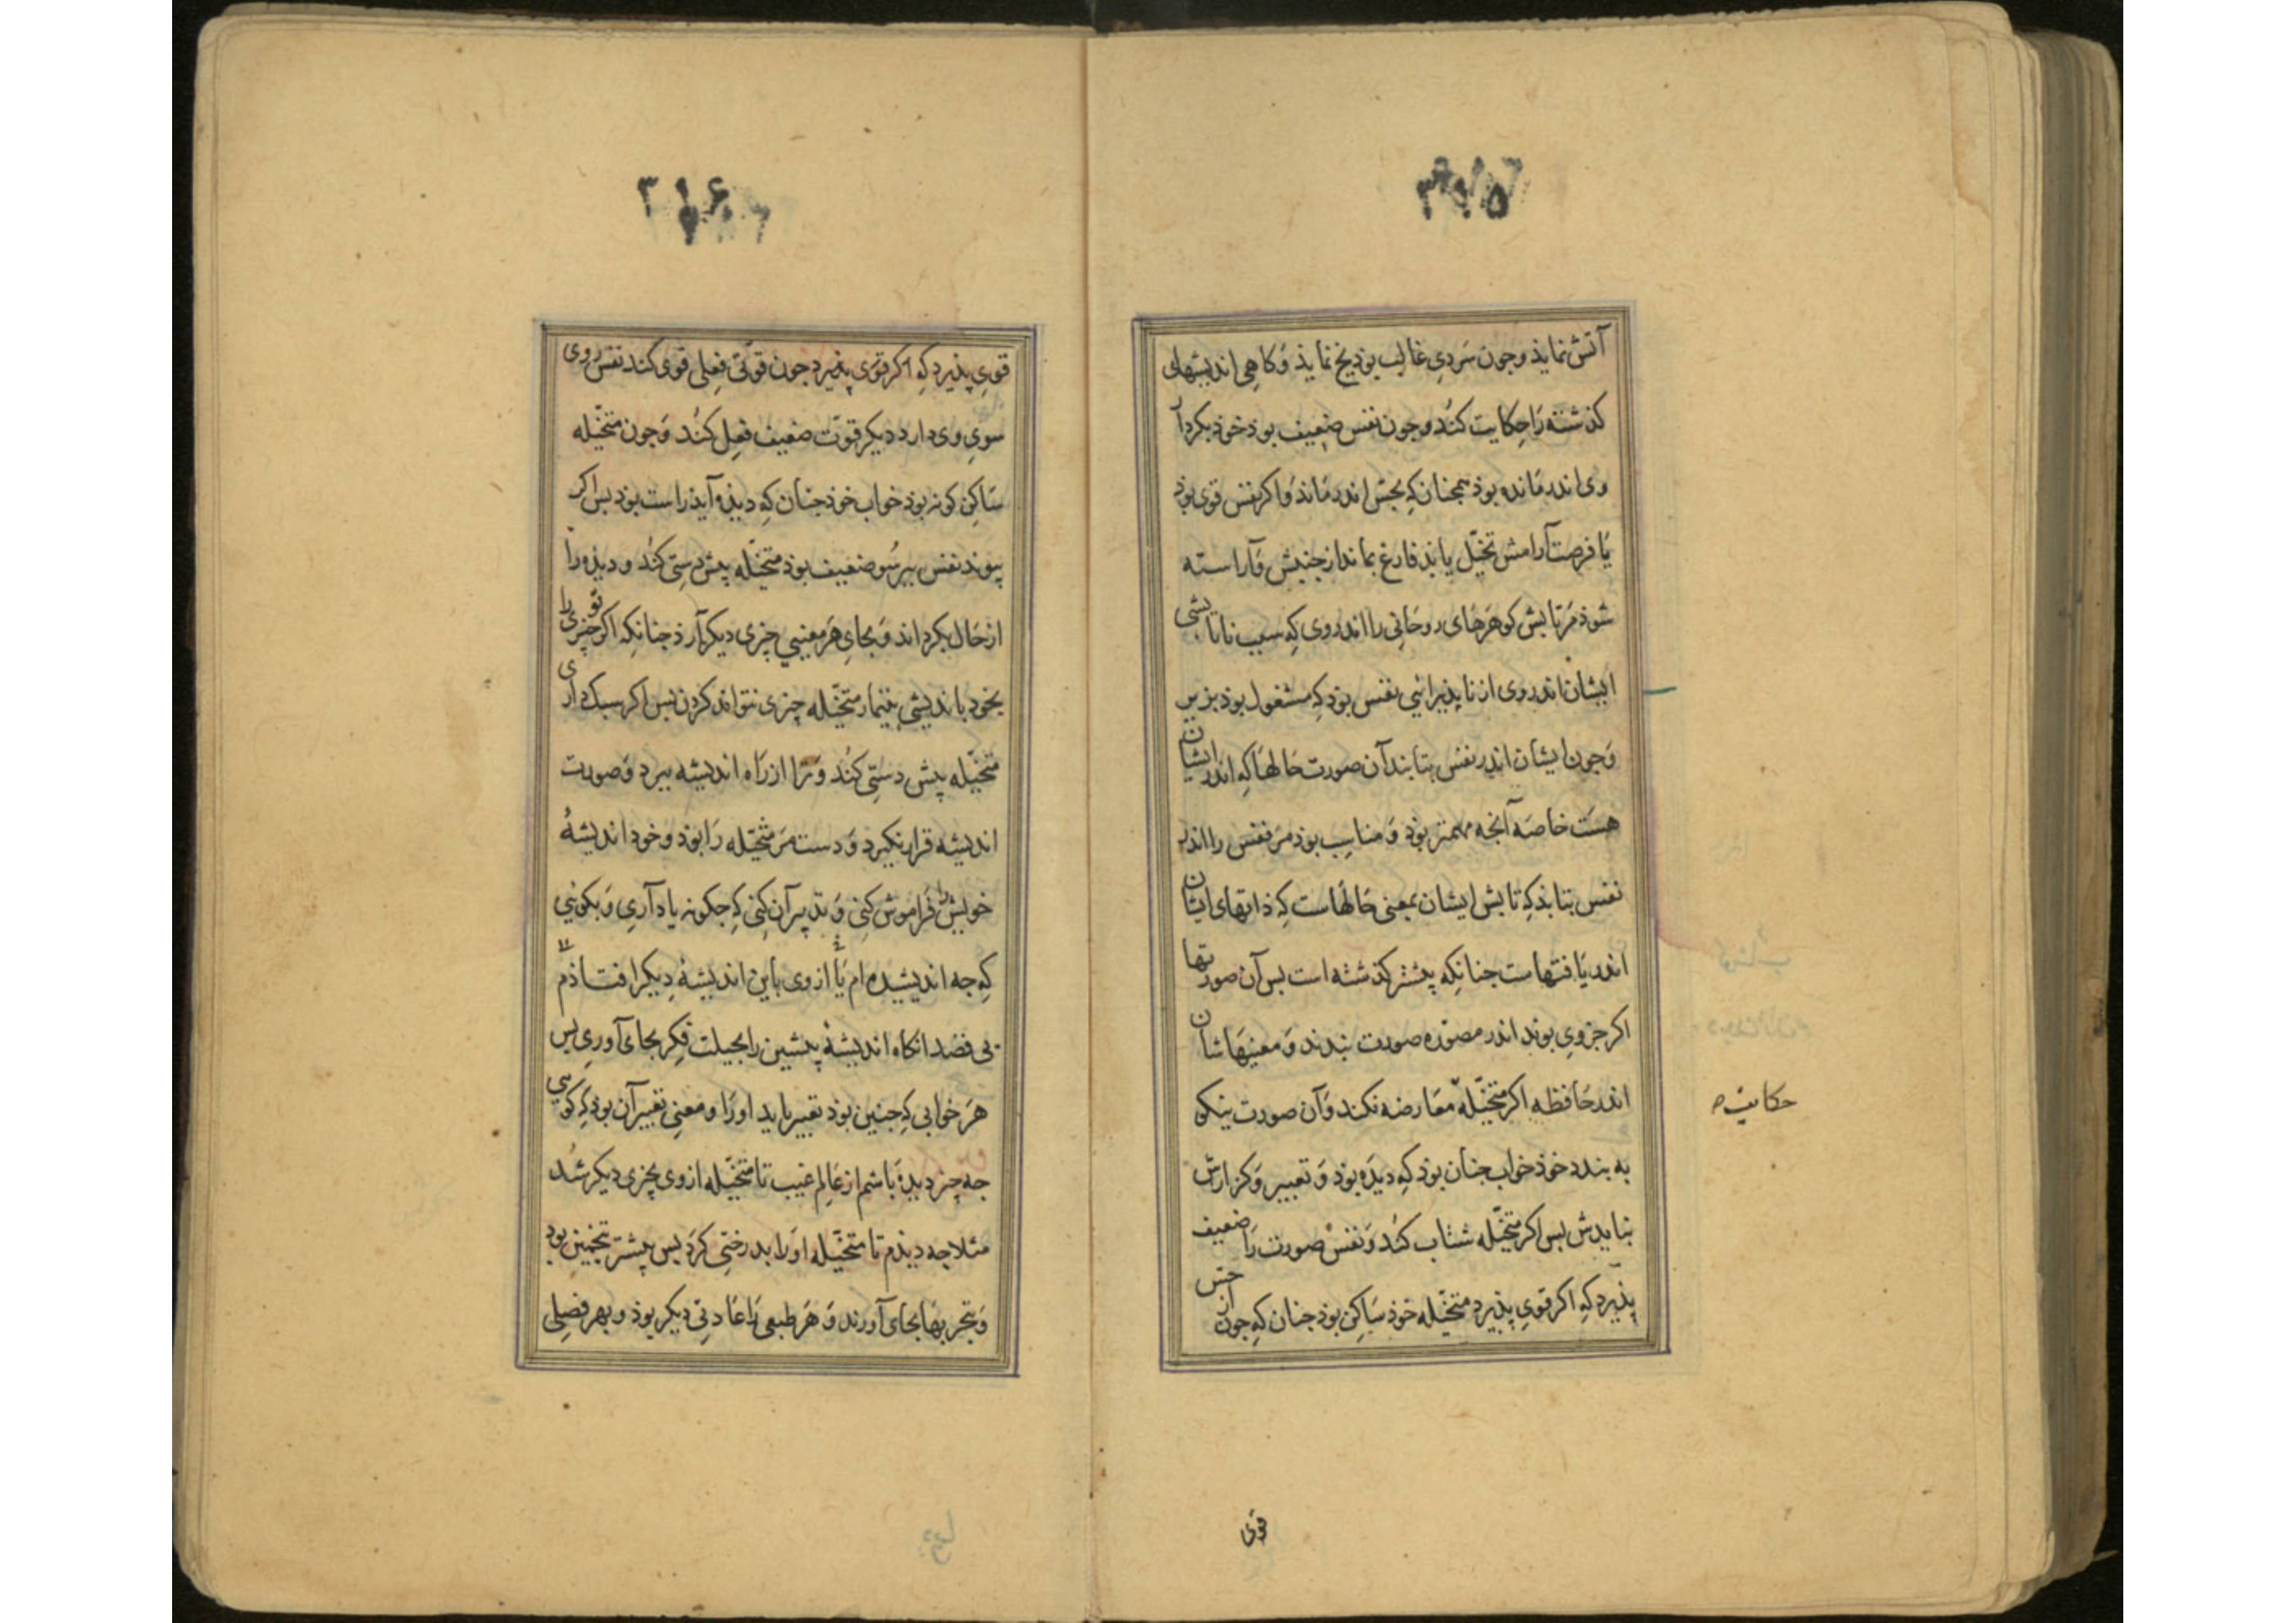 ۳۱۵
آتش نماید و جون سَردیِ غالب بوذ یخ نماید وَ کاهِی اندیشهای
کذشته رَا حِکایت کنُد و جون نفس ضعِیف بوذ خوذ بکرد آ
وی اندر مَانده بوذ همجنان کِه بحِسّ اندر مَاندَ وَ اکر نفس قوی بوذ
یَا فرصت آرامش تخیّل یابذ فارغ بماند از جنبش وَ آراسته
شوذ مَر تابش کوهَرهَای روحَانِی را اندر وی کِه سبب ناتابشی
ایشان اندر وی از ناپذیرائیِ نفس بوذ کِه مشغول بوذ بزیر
وَ جون ایشان اندر نفس بتابند آن صورت حَالهَا کِه اندر ایشان
هست خاصه آنجه مهمتر بوذ وَ مناسِب بوذ مَر نفس را اندر
نفس بتابذ کِه تابش ایشان بمعنی حَالهَاست کِه ذاتهای ایشان
اندر یَافتهاست جنانکه پیشتر کذشته است بس آن صورتها
اکر جزوی بوند اندر مصوّره صورت بندند وَ معنیهَاشان
اندر حَافظه اکر متخیّله معَارضه نکند وَ آن صورت نیکو
حکایت
به بندد خوذ خواب جنان بوذ کِه دیدَه بوذ وَ تعبیر وَ کزارش
نبایدش بس اکر متخیّله شتاب کنُد وَ نفس صورت رَا ضعیف
پذیرد کِه اکر قویِ پذیرد متخیّله خوذ سَاکِن بوذ جنان کِه جون از حسّ
قوی
۳۱۶
قویِ پذیرد کِه اکر قوی پذیرد جون قوّتی فِعلی قوی کند نفس روی
سویِ وی دارد دیکر قوّت ضعیف فعِل کنُد وَ جون متخیّله
سَاکِن کونه بوذ خواب خوذ جنان کِه دیذه آیذ راست بوذ بس اکر
پیوند نفس ببرسُو ضعیف بوذ متخیّله پیش دستِی کنُد و دیذه را
از حَال بکرداند وَ بجایِ هَر معنیی چیزی دیکر آرذ جنانکِه اکر تو چیزی را
بخود باندیشی بتیمار متخیّله چیزی نتواند کردن بس اکر سبک داری
متخیّله پیش دستِی کنُد وَ ترَا از رَاه اندیشه ببرد وَ صورت
اندیشه قرار نکیرد وَ دست مَر متخیّله رَا بوذ و خود اندیشهٔ
خویش را فَراموش کنِی وَ تدبیر آن کنِی کِه جکونه یاد آریِ وَ بکوئِی
کِه جه اندیشیده ام یَا از وی باین اندیشهٔ دِیکر افتاذم
بی قصد انکاه اندیشهٔ پیشین را بحیلت فِکر بجای آورِی بس
هَر خوابی کِه جنین بوذ تعبیر باید او رَا و معنِی تعبیر آن بوذ کِه کویی
جه چیز دیدهٔ بَاشم از عَالم غیب تا متخیّله از وی بچیزی دیکر شُد
مثلا جه دیذم تا متخیّله او رَا بدرختِی کرَد بس پیشتر تخمین بوذ
وَ بتجربهَا بجای آورند وَ هَر طبعی رَا عَادتی دیکر بوذ و بهر فصِلی